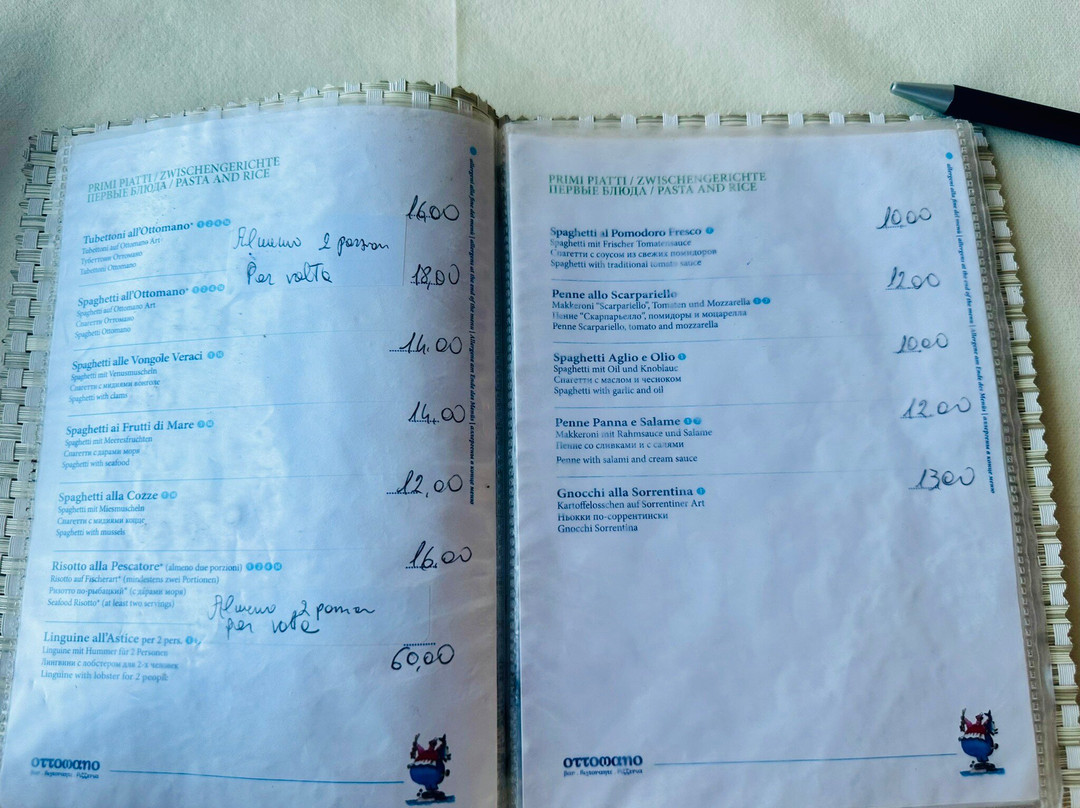 PRIMI PIATTI / ZWISCHENGERICHTE
ПЕРВЫЕ БЛЮДА / PASTA AND RICE
16.00
Tubettoni all'Ottomano*
Tubettoni auf Ottomano Art
Тубеттони Оттомано
Tubettoni Ottomano
Almeno 2 porzioni
Per volta
18,00
Spaghetti all'Ottomano*
Spaghetti auf Ottomano Art
Спагетти Оттомано
Spaghetti Ottomano
14.00
Spaghetti alle Vongole Veraci
Spaghetti mit Venusmuscheln
Спагетти с мидиями вонголе
Spaghetti with clams
14,00
Spaghetti ai Frutti di Mare
Spaghetti mit Meeresfruchten
Спагетти с дарами моря
Spaghetti with seafood
12,00
Spaghetti alla Cozze
Spaghetti mit Miesmuscheln
Спагетти с мидиями коцце
Spaghetti with mussels
16.00
Risotto alla Pescatore* (almeno due porzioni)
Risotto auf Fischerart* (mindestens zwei Portionen)
Ризотто по-рыбацкий* (с дарами моря)
Seafood Risotto* (at least two servings)
Almeno 2 porzioni
per volta
Linguine all'Astice per 2 pers.
Linguine mit Hummer für 2 Personen
Лингвини с лобстером для 2-х человек
Linguine with lobster for 2 people
60,00
OTTOMANO
allergeni alla fine del menù | allergens at the end of the menu | Allergene am Ende des Menüs | аллергены в конце меню
PRIMI PIATTI / ZWISCHENGERICHTE
ПЕРВЫЕ БЛЮДА / PASTA AND RICE
10.00
Spaghetti al Pomodoro Fresco
Spaghetti mit Frischer Tomatensauce
Спагетти с соусом из свежих помидоров
Spaghetti with traditional tomato sauce
12.00
Penne allo Scarpariello
Makkeroni "Scarpariello", Tomaten und Mozzarella
Пенне "Скарпарьелло", помидоры и моцарелла
Penne Scarpariello, tomato and mozzarella
10.00
Spaghetti Aglio e Olio
Spaghetti mit Oil und Knoblauc
Спагетти с маслом и чесноком
Spaghetti with garlic and oil
12.00
Penne Panna e Salame
Makkeroni mit Rahmsauce und Salame
Пенне со сливками и с салями
Penne with salami and cream sauce
13,00
Gnocchi alla Sorrentina
Kartoffelosschen auf Sorrentiner Art
Ньокки по-соррентински
Gnocchi Sorrentina
OTTOMANO
allergeni alla fine del menù | allergens at the end of the menu | Allergene am Ende des Menüs | аллергены в конце меню